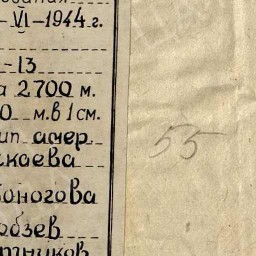 -VI-1944 г.
-13
а 2700 м.
0 м. в 1 см.
ип амер
каева
оногова
обзев
ртников
55